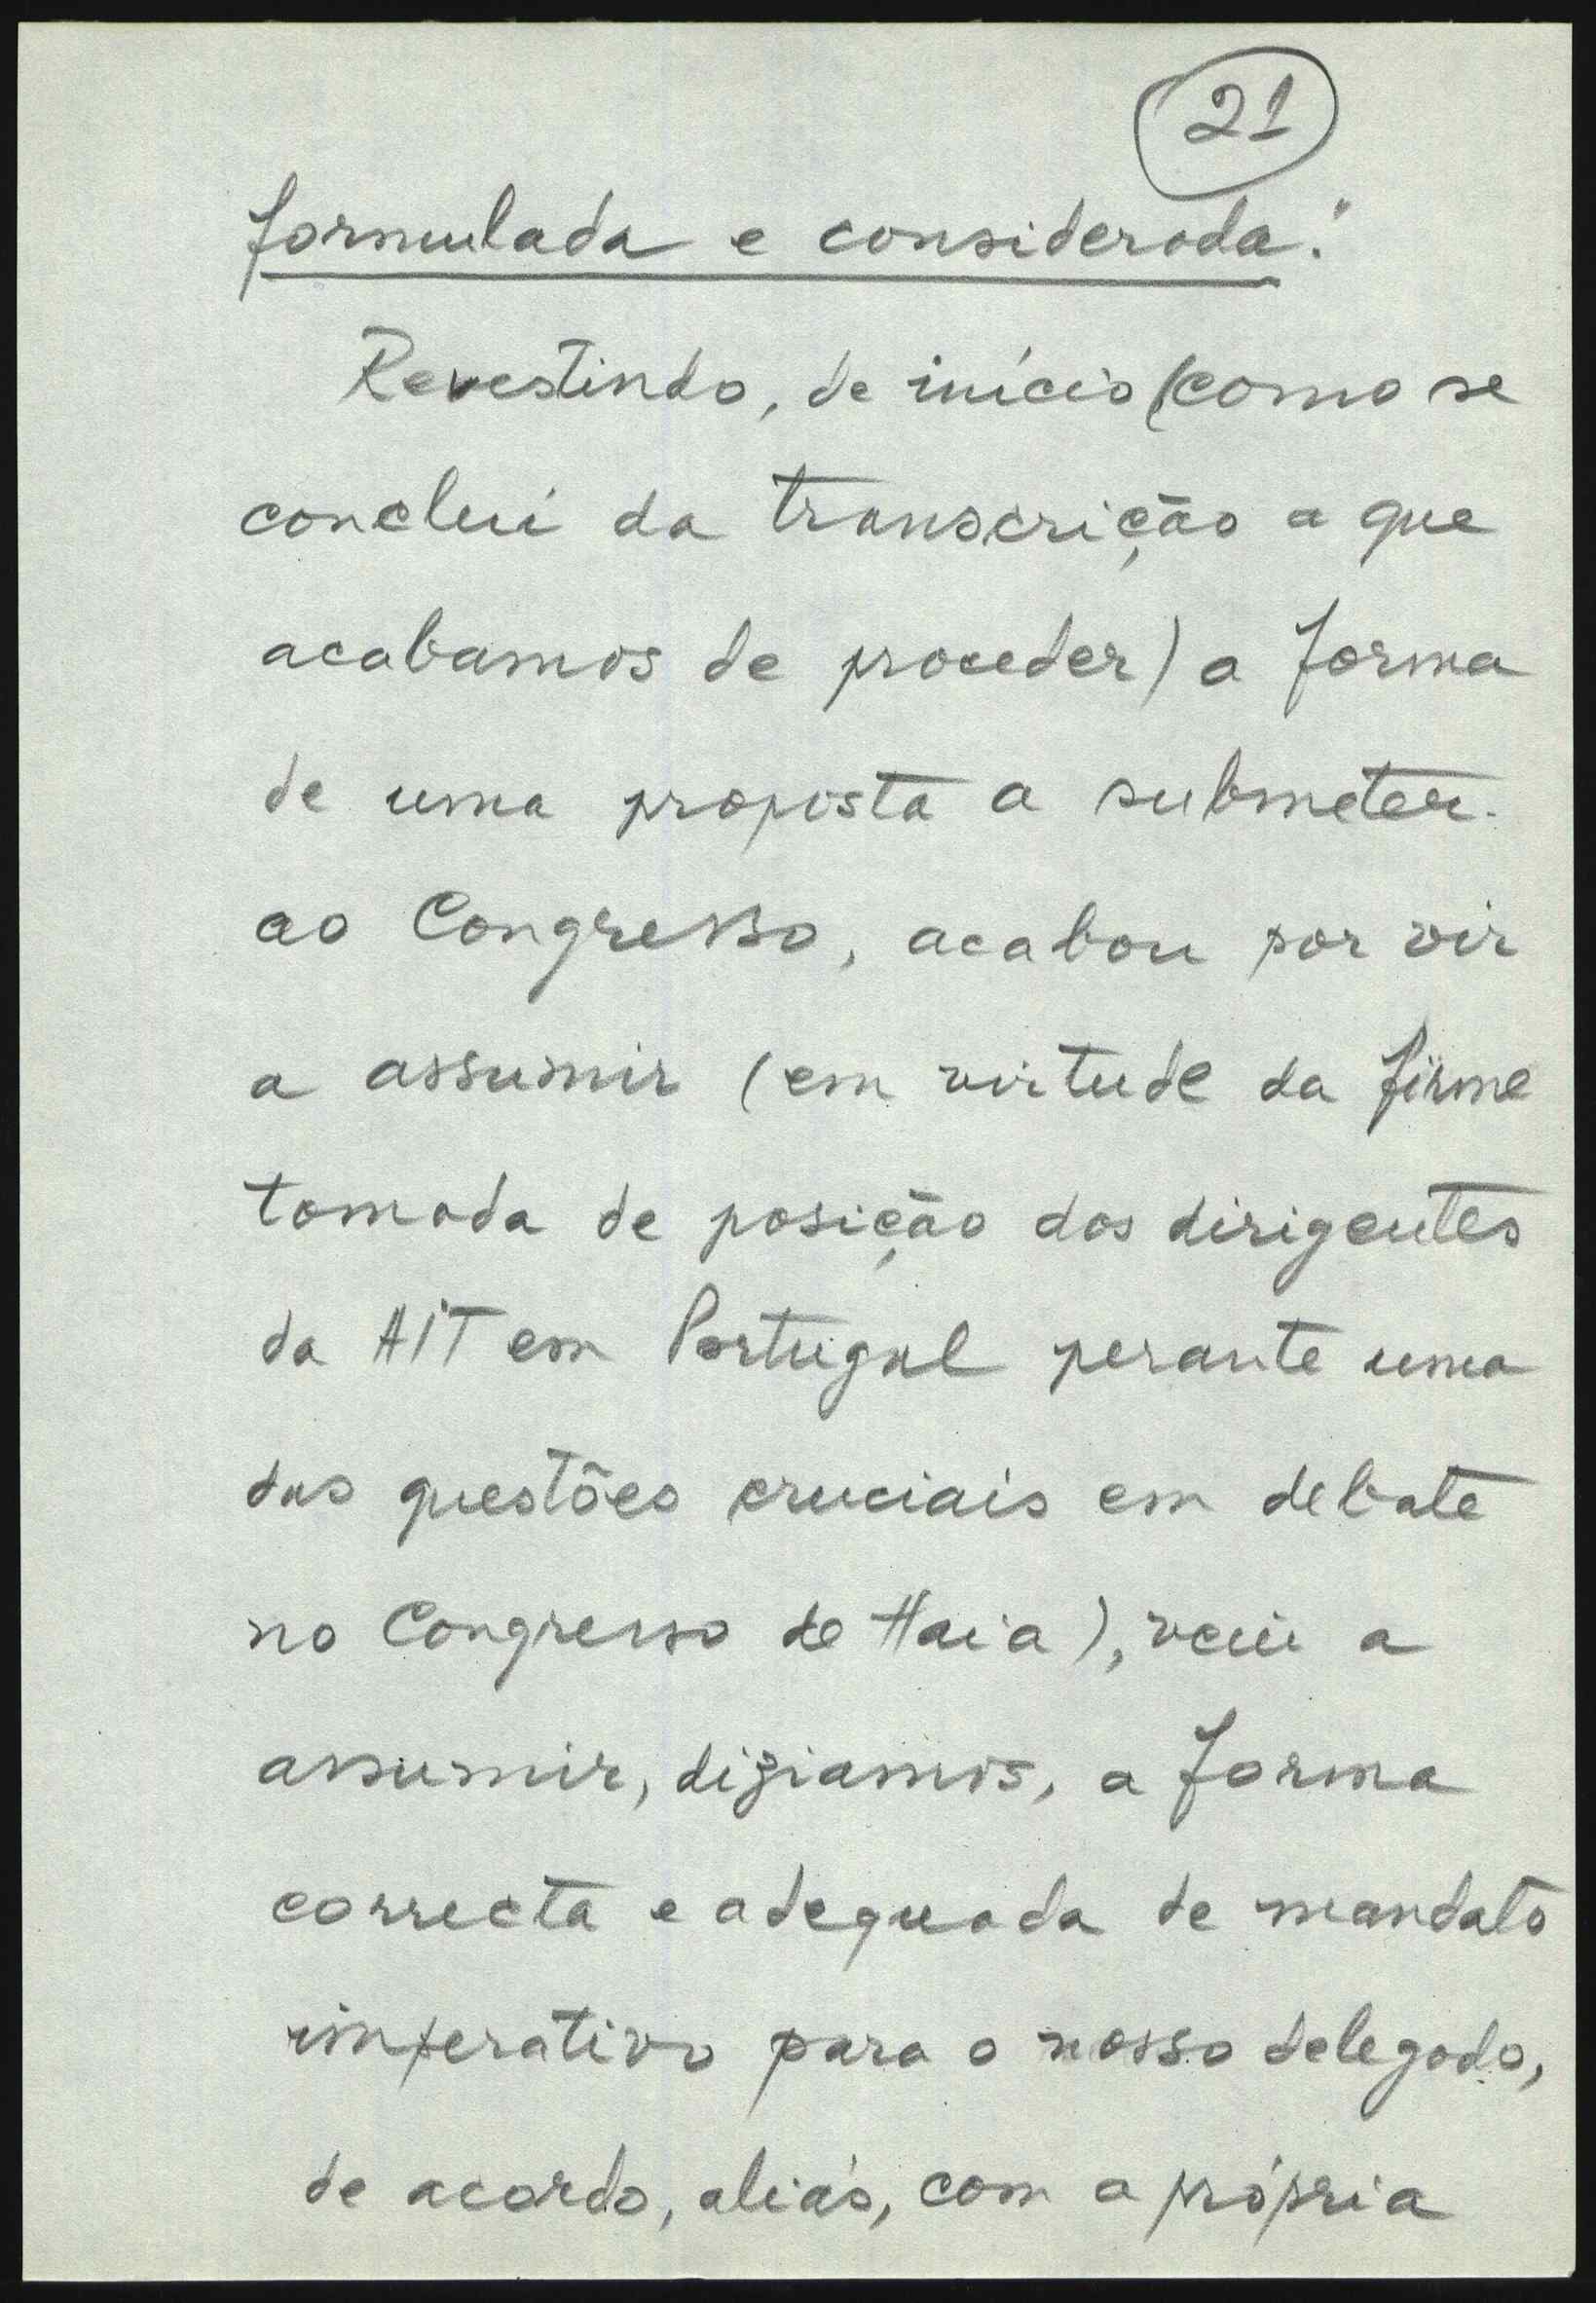 21
formulada e considerada."
Revestindo, de início (como se
conclui da transcrição a que
acabamos de proceder) a forma
de uma proposta a submeter
ao Congresso, acabou por vir
a assumir (em virtude da firme
tomada de posição dos dirigentes
da AIT em Portugal perante uma
das questões cruciais em debate
no Congresso de Haia), veiu a
assumir, diziamos, a forma
correcta e adequada de mandato
imperativo para o nosso delegado,
de acordo, aliás, com a própria